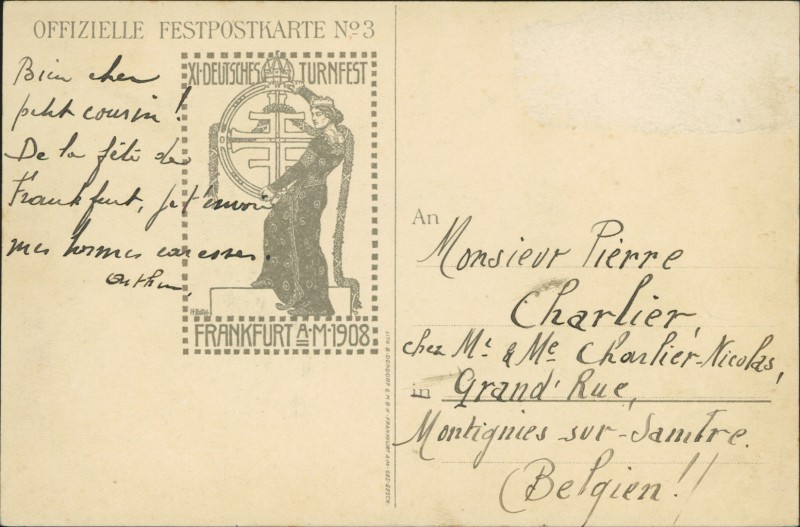 OFFIZIELLE FESTPOSTKARTE No 3
XI·DEUTSCHES TURNFEST
FRANKFURT A·M·1908
Bien cher
petit cousin !
De la fête de
Frankfurt, je t'envoie
mes bonnes caresses.
An
Monsieur Pierre
Charlier,
chez Mr & Me Charlier-Nicolas,
in Grand'Rue,
Montignies sur-Sambre.
(Belgien!!